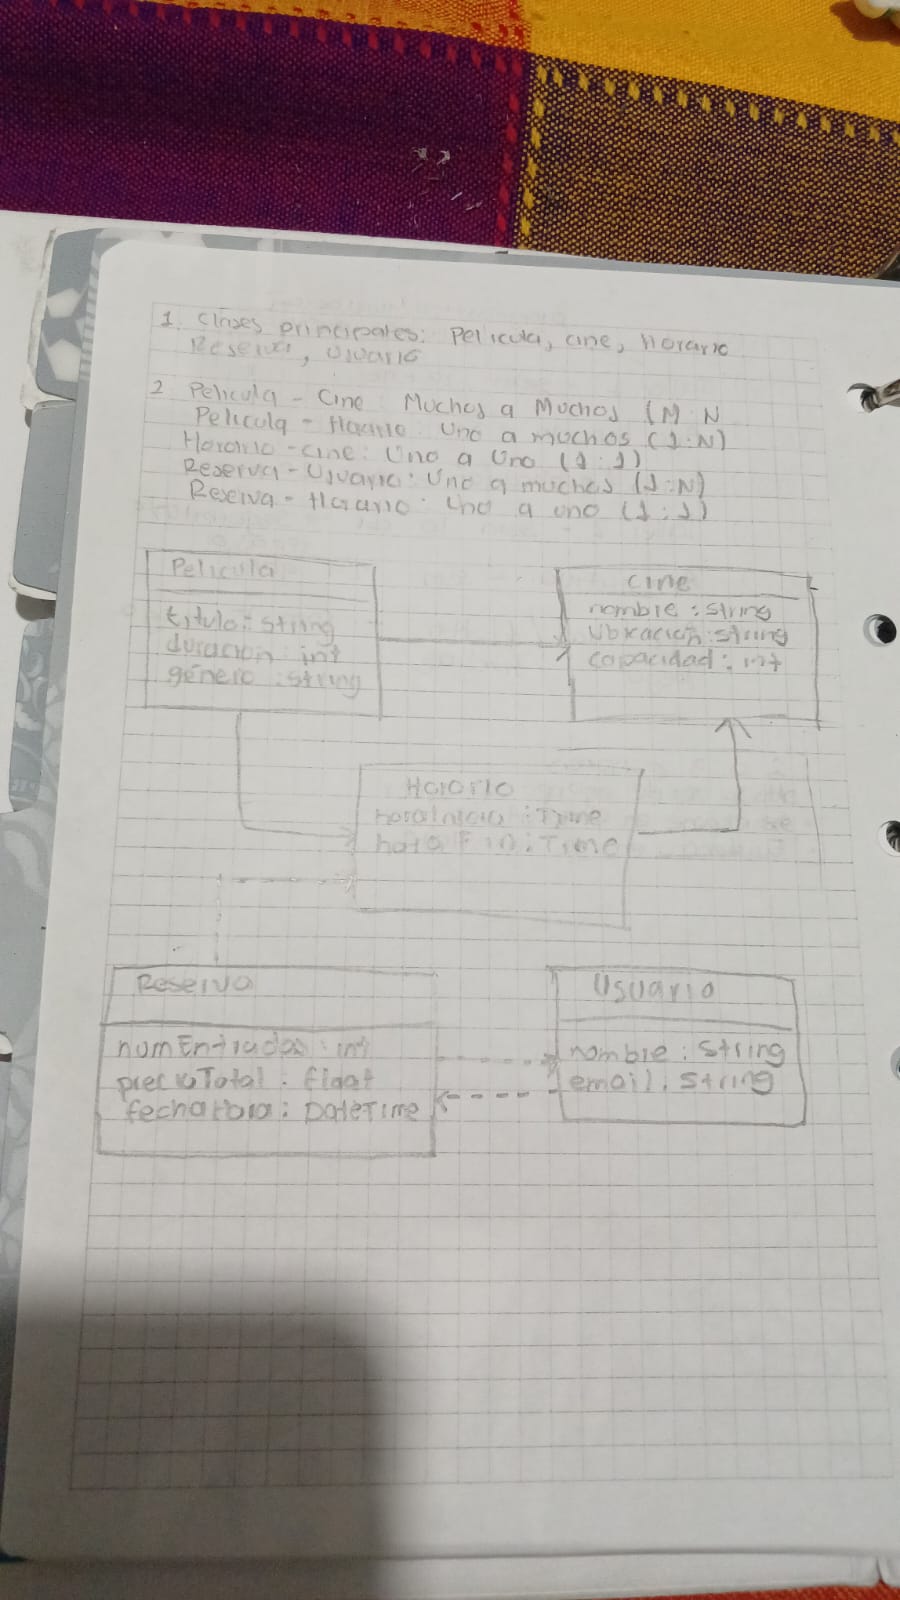 1. Clases principales: Pelicula, cine, Horario
Reserva, Usuario
2 Pelicula - Cine: Muchos a Muchos (M:N
Pelicula - Horario: Uno a muchos (1:N)
Horario - cine: Uno a Uno (1:1)
Reserva - Usuario: Uno a muchos (1:N)
Reserva - Horario: Uno a uno (1:1)
Pelicula
titulo: string
duracion: int
género: string
cine
nombre: string
Ubicación: string
capacidad: int
Horario
horaInicio: Time
hora Fin: Time
Reserva
numEntradas: int
precioTotal: float
fechaHora: DateTime
Usuario
nombre: String
email: String